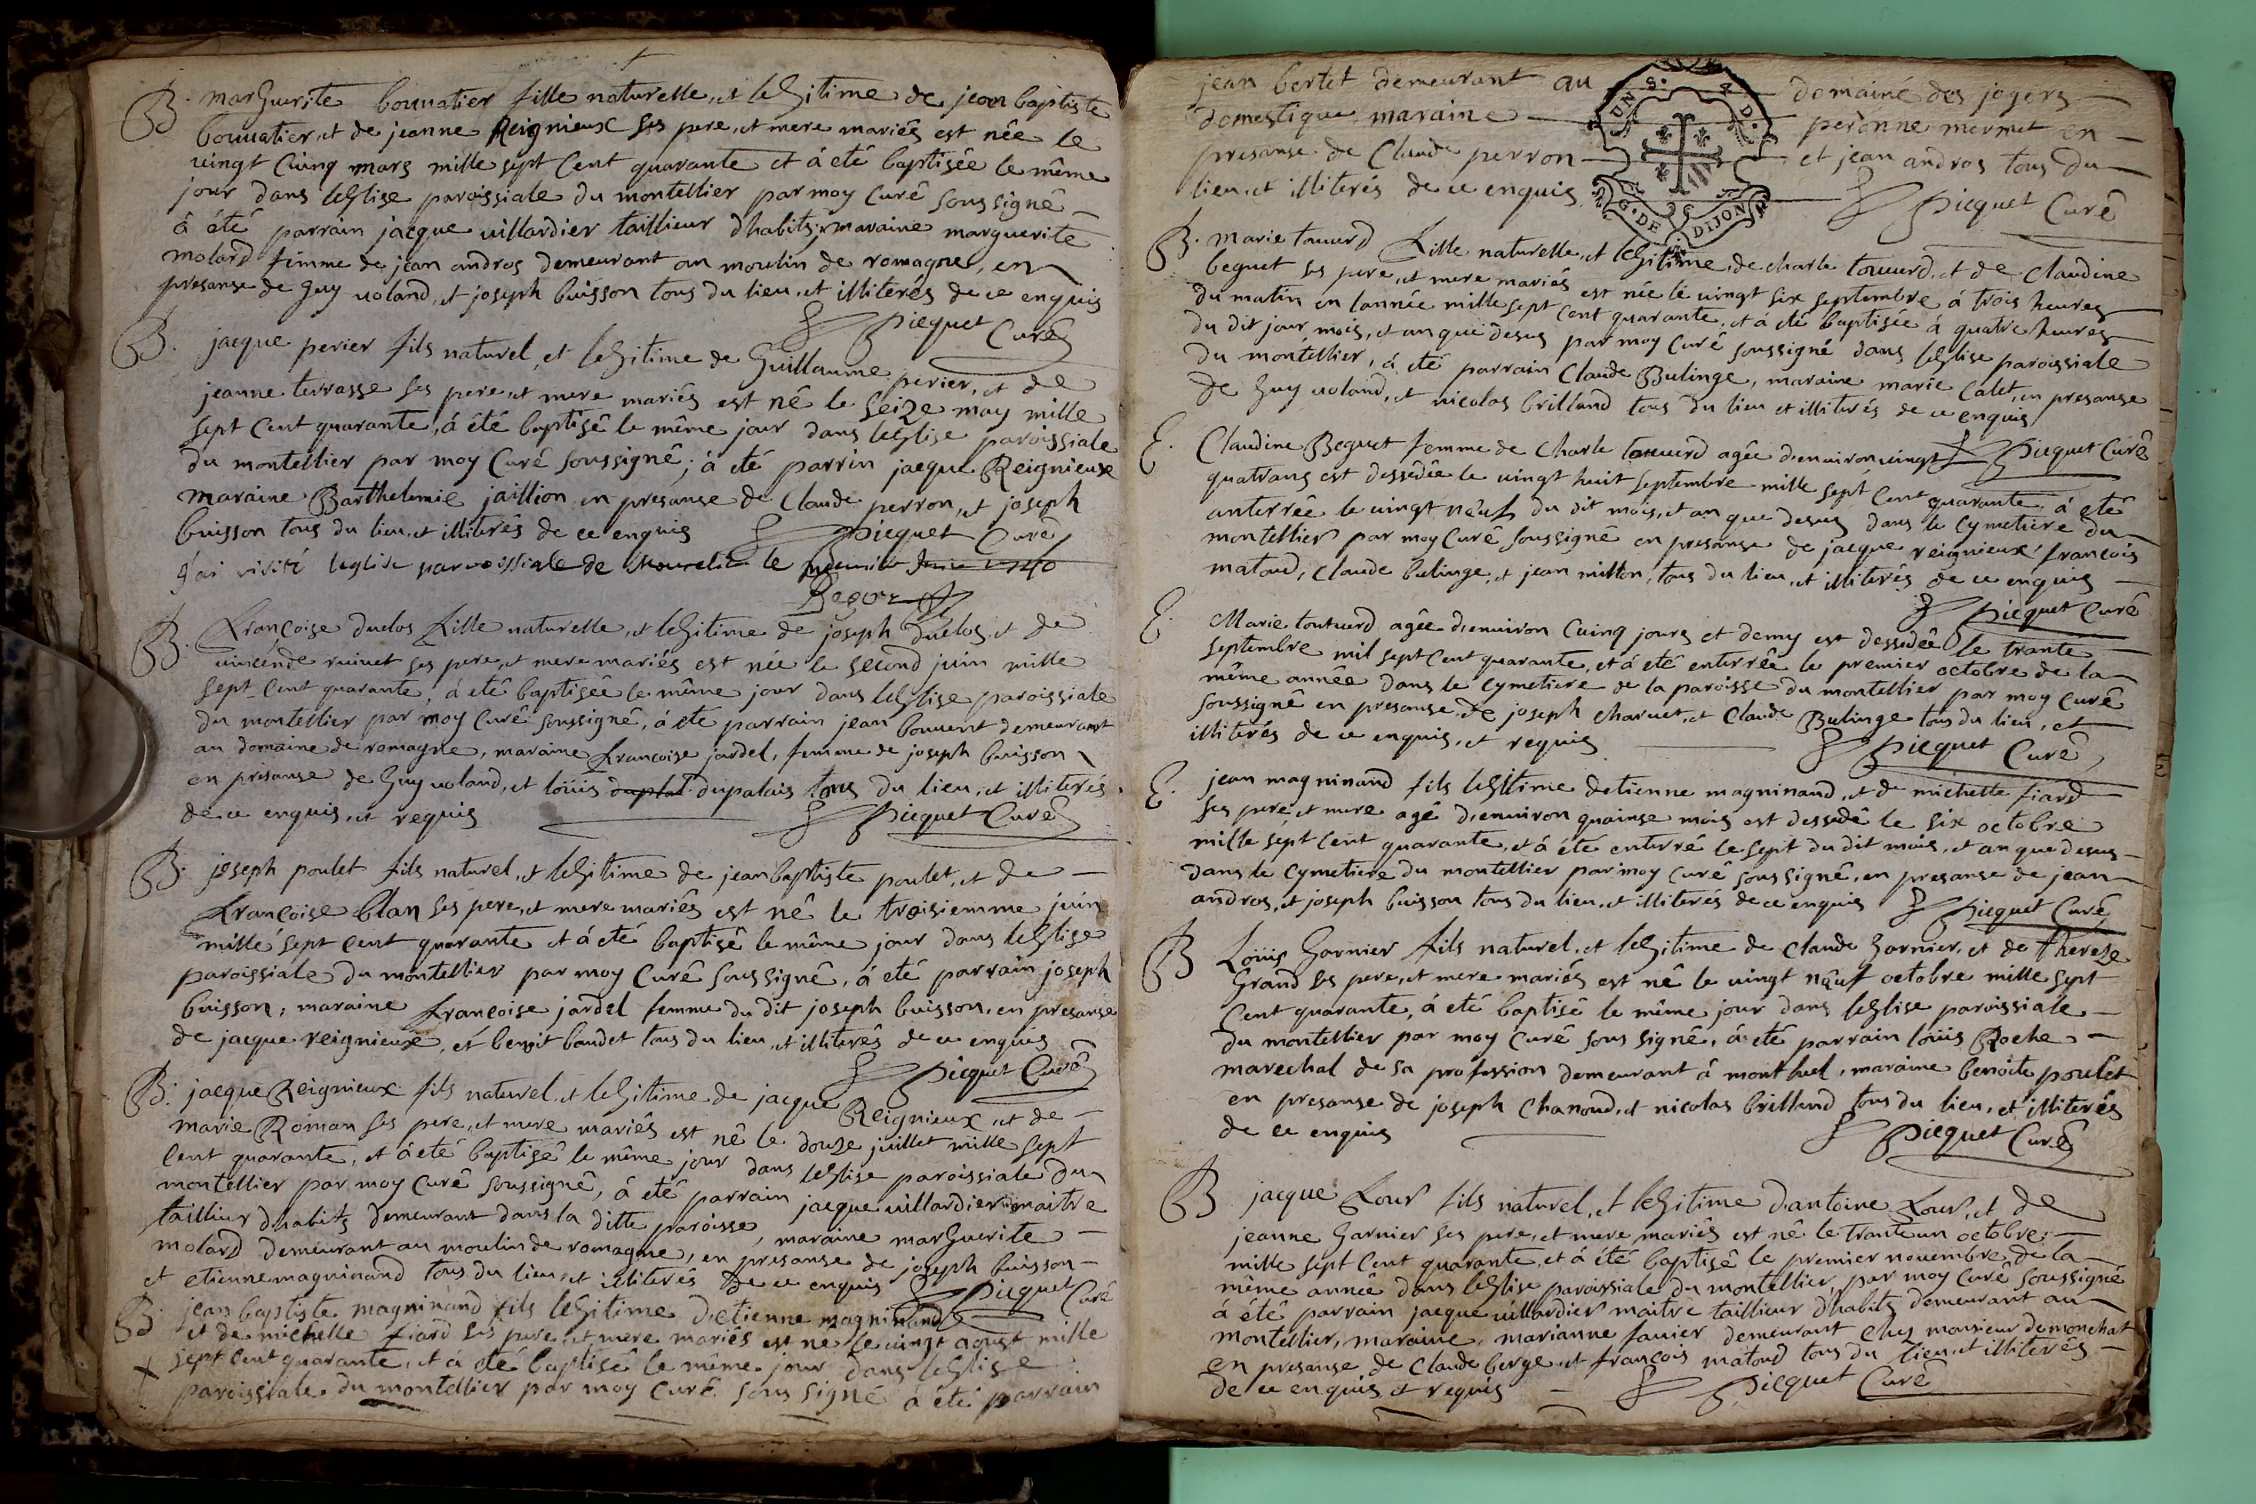 B. marguerite bouuatier fille naturelle, et legitime de jean baptiste
bouuatier, et de jeanne Reignieux ses pere, et mere mariés est née le
uingt cinq mars mille sept cent quarante et á eté baptisée le même
jour dans leglise paroissiale du montellier par moy Curé soussigné
á été parrain jacque uillardier taillieur dhabits, maraine marguerite
molard femme de jean andros demeurant au moulin de romagne, en
presanse de guy uoland, et joseph buisson tous du lieu, et illiterés de ce enquis
Picquet Curé
B. jacque perier fils naturel, et legitime de Guillaume perier, et de
jeanne terrasse ses pere, et mere mariés est né le seize may mille
sept cent quarante, á été baptisé le même jour dans leglise paroissiale
du montellier par moy Curé soussigné, á eté parrin jacque Reignieux
maraine Barthelemie jaillion en presanse de Claude perron, et joseph
buisson tous du lieu, et illiterés de ce enquis Picquet Curé
j'ai visité leglise parroissiale de le 1740
B. Françoise duclos fille naturelle, et legitime de joseph duclos, et de
ses pere, et mere mariés est née le second juin mille
sept cent quarante, á eté baptisée le même jour dans leglise paroissiale
du montellier par moy Curé soussigné, á eté parrain jean bouuent demeurant
au domaine de romagne, maraine françoise jardel, femme de joseph buisson
en présanse de guy uoland, et loüis dupalais tous du lieu, et illiterés
de ce enquis, et requis Picquet Curé
B. joseph poulet fils naturel, et legitime de jean baptiste poulet, et de
Françoise blan ses pere, et mere mariés est né le troisiemme juin
mille sept cent quarante et á eté baptisé le même jour dans leglise
paroissiale du montellier par moy Curé soussigné, á eté parrain joseph
buisson, maraine Françoise jardel femme du dit joseph buisson, en presanse
de jacque reignieux, et benoit baudet tous du lieu, et illiterés de ce enquis
Picquet Curé
B. jacque Reignieux fils naturel, et legitime de jacque Reignieux, et de
marie Roman ses pere, et mere mariés est né le douze juillet mille sept
cent quarante, et á eté baptisé le même jour dans leglise paroissiale du
montellier par moy Curé soussigné, á eté parrain jacque uillardier maitre
taillieur dhabits demeurant dans la ditte paroisse, maraine marguerite
molard demeurant au moulin de romagne, en presanse de joseph buisson
et etienne magninand tous du lieu, et illiterés de ce enquis Picquet Curé
B. jean baptiste magninand fils legitime detienne magninand
et de michelle fiard ses pere, et mere mariés est né le uingt aoust mille
sept cent quarante, et á eté baptisé le même jour dans leglise
paroissiale du montellier par moy Curé sous signé á été parrain
jean bertet demeurant au domaine des jogers
domestique maraine peronne mermet en
presanse de Claude perron et jean andros tous du
lieu, et illiterés de ce enquis Picquet Curé
G. DE DIJON
B. marie touuerd fille naturelle, et legitime, de charle touuerd, et de Claudine
beguet ses pere, et mere mariés est née le uingt six septembre á trois heures
du matin en lannée mille sept cent quarante, et á eté baptisée á quatre heures
du dit jour, mois, et an que desus par moy Curé soussigné dans leglise paroissiale
du montellier, á eté parrain Claude Bulinge, maraine marie Calet, en presanse
de guy uoland, et nicolas brilland tous du lieu et illiterés de ce enquis
Picquet Curé
E. Claudine Beguet femme de charle touuerd agée denuiron uingt
quatrans est dessédée le uingt huit septembre mille sept cent quarante á eté
anterrée le uingt neuf du dit mois, et an que desus dans le cymetiere du
montellier par moy Curé soussigné en presanse de jacque reignieux, françois
matoud, Claude bulinge, et jean millon, tous du lieu, et illiterés de ce enquis
Picquet Curé
E. Marie toutuerd agée denuiron cuinq jours et demy est dessedée le trante
septembre mil sept cent quarante, et á eté enterrée le premier octobre de la
même année dans le cymetiere de la paroisse du montellier par moy Curé
soussigné en presanse de joseph charuet, et Claude Bulinge tous du lieu, et
illiterés de ce enquis, et requis Picquet Curé
E. jean magninand fils legitime detienne magninand, et de michelle fiard
ses pere, et mere agé denuiron quainse mois est dessedé le six octobre
mille sept cent quarante, et á été enterré le sept du dit mois, et an que desus
dans le cymetiere du montellier par moy Curé soussigné, en presanse de jean
andros, et joseph buisson tous du lieu, et illiterés de ce enquis Picquet Curé
B Loüis garnier fils naturel, et legitime de Claude garnier, et de thereze
Grand ses pere, et mere mariés est né le uingt neuf octobre mille sept
cent quarante, á eté baptisé le même jour dans leglise paroissiale
du montellier par moy Curé sous signé, á eté parrain loüis Roche
marechal de sa profession demeurant á montluel, maraine benoite poulet
en presanse de joseph Chanoud, et nicolas brilland tous du lieu, et illiterés
de ce enquis Picquet Curé
B jacque Four fils naturel, et legitime dantoine Four, et de
jeanne garnier ses pere, et mere mariés est né le trante un octobre
mille sept cent quarante, et á été baptisé le premier nouembre de la
même année dans leglise paroissiale du montellier, par moy Curé soussigné
á été parrain jacque uillardier maitre taillieur dhabits demeurant au
montellier, maraine, marianne fauier demeurant chez monsieur demonchat
en presanse de Claude berge, et françois matoud tous du lieu, et illiterés
de ce enquis et requis Picquet Curé